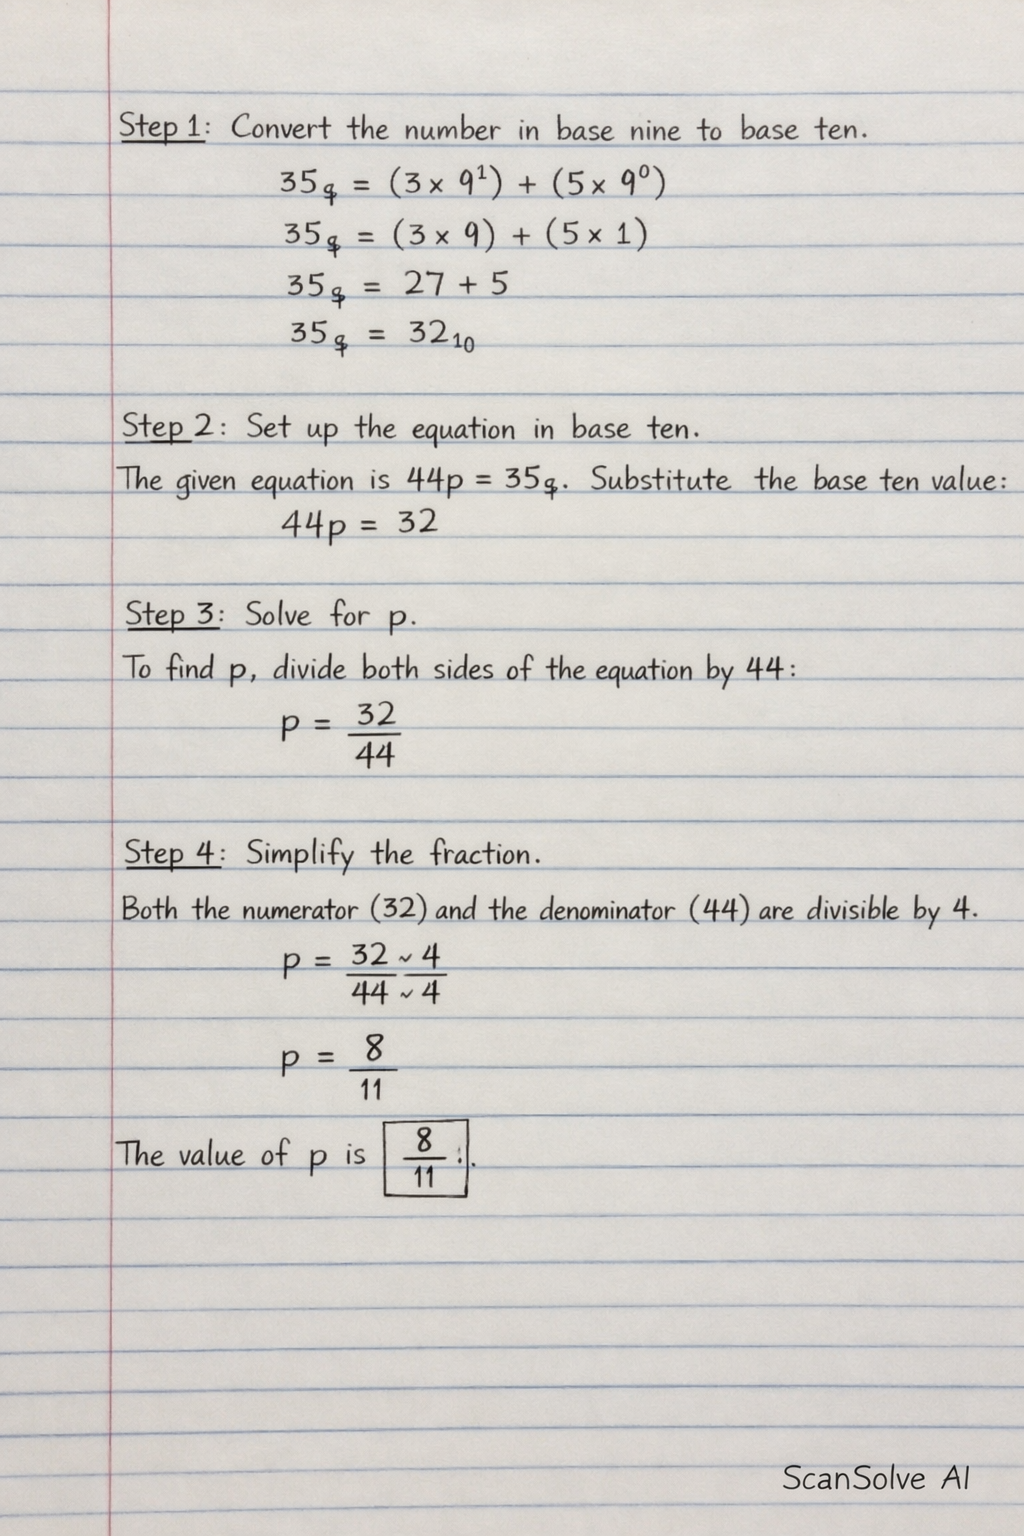 Step 1: Convert the number in base nine to base ten.
35₉ = (3 × 9¹) + (5 × 9⁰)
35₉ = (3 × 9) + (5 × 1)
35₉ = 27 + 5
35₉ = 32₁₀
Step 2: Set up the equation in base ten.
The given equation is 44p = 35₉. Substitute the base ten value:
44p = 32
Step 3: Solve for p.
To find p, divide both sides of the equation by 44:
p = 32/44
Step 4: Simplify the fraction.
Both the numerator (32) and the denominator (44) are divisible by 4.
p = 32 ~ 4 / 44 ~ 4
p = 8/11
The value of p is 8/11 :.
ScanSolve AI